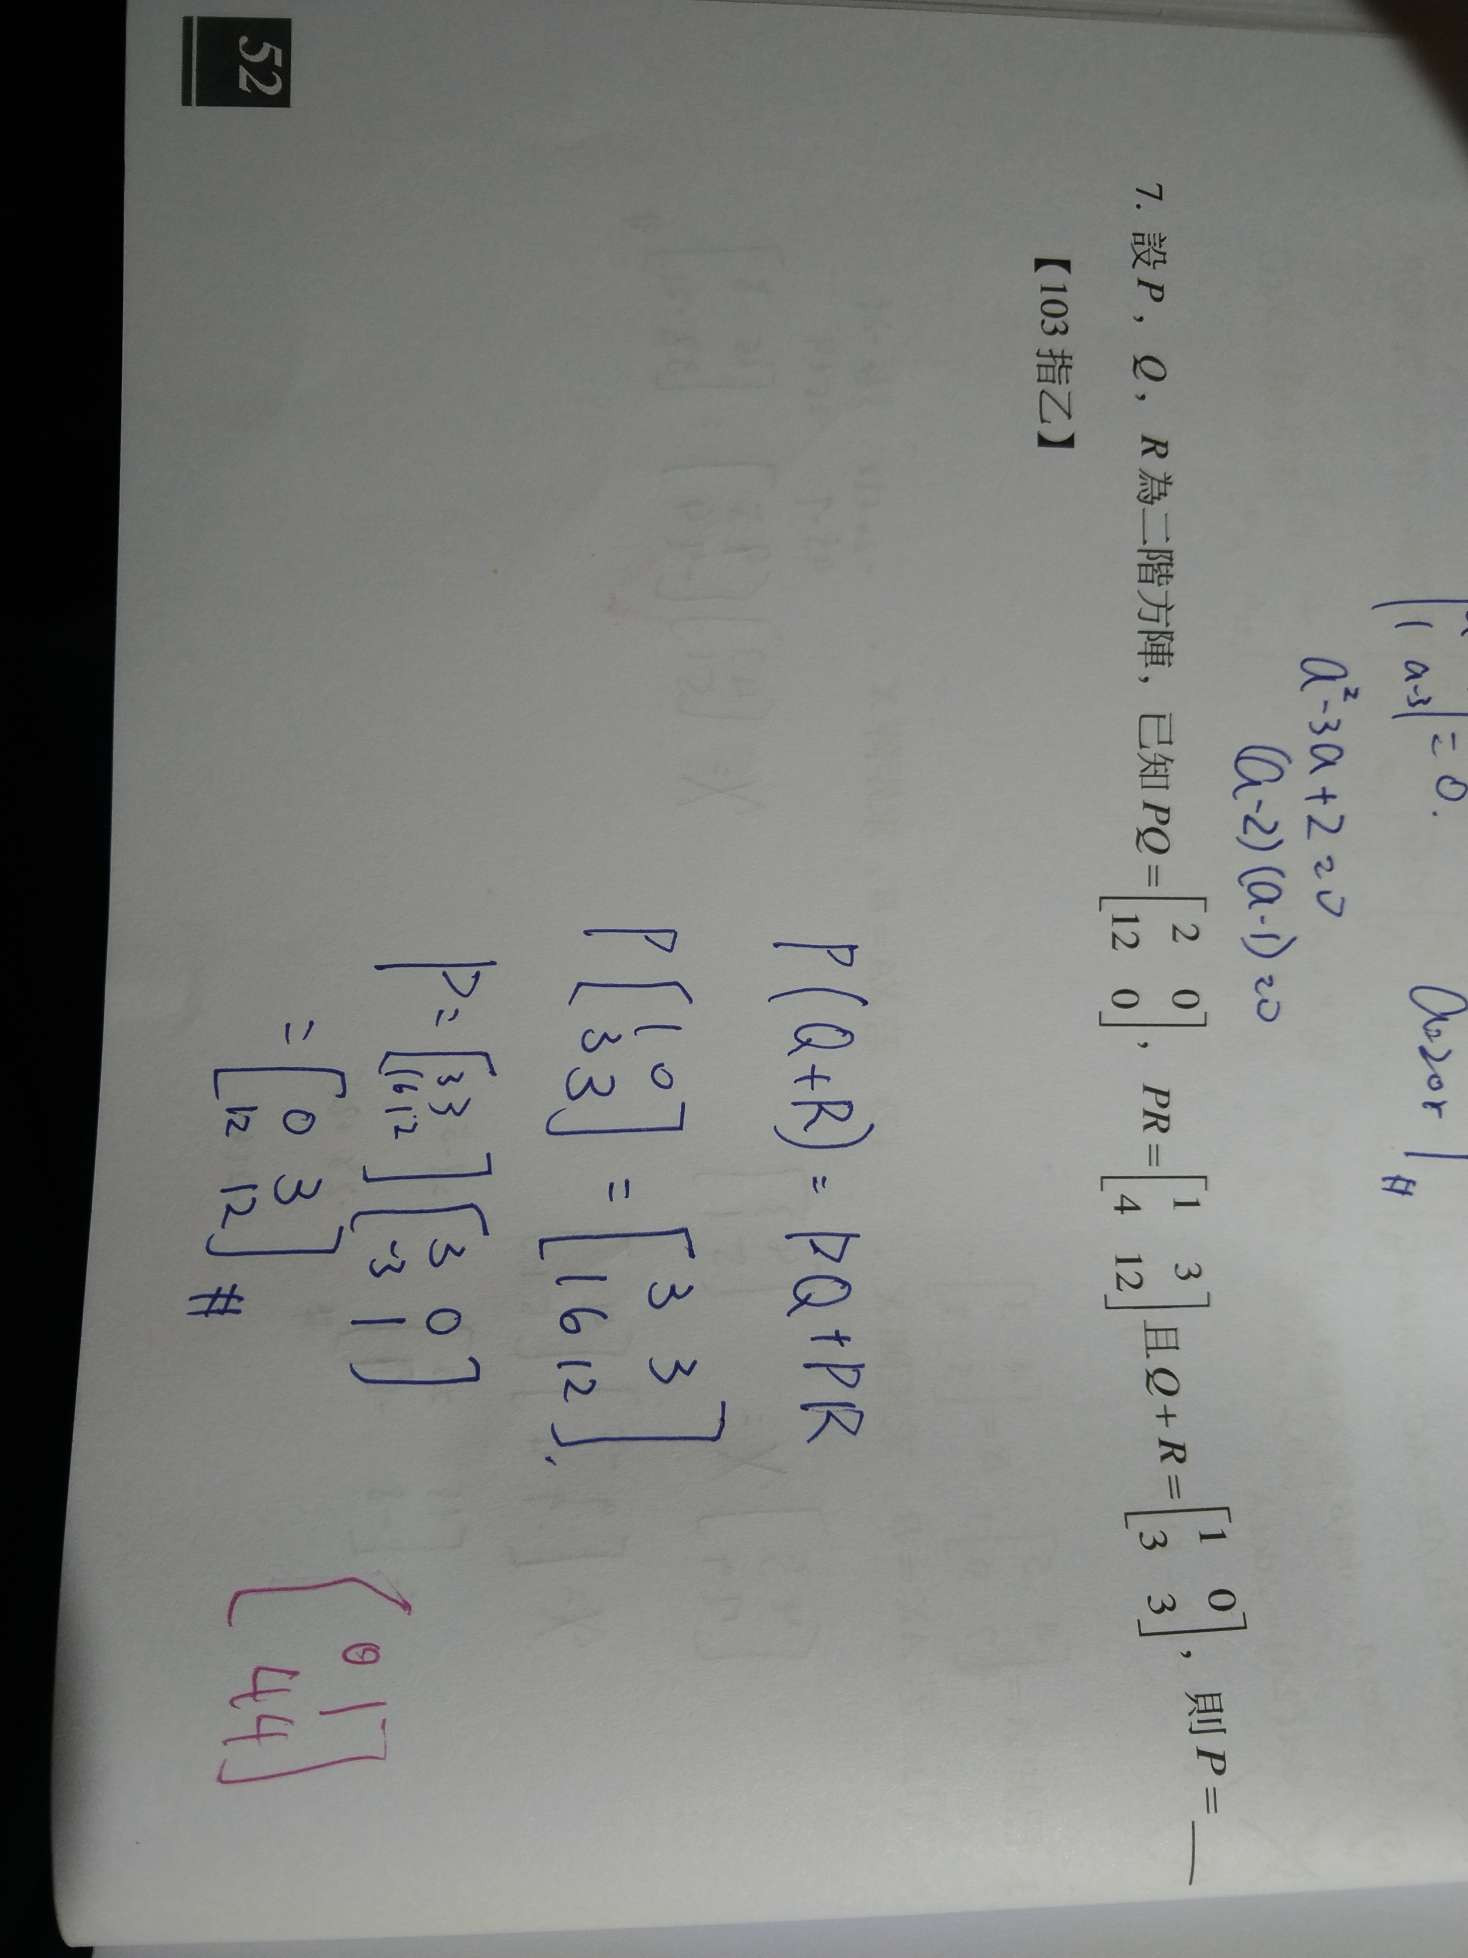 | 1 a-3 | = 0.
a=2 or 1 #
a²-3a+2=0
(a-2)(a-1)=0
7. 設P，Q，R為二階方陣，已知PQ=[2 0; 12 0]，PR=[1 3; 4 12]且Q+R=[1 0; 3 3]，則P=＿
【103指乙】
P(Q+R)=PQ+PR
P[1 0; 3 3]=[3 3; 16 12].
P=[3 3; 16 12][3 0; -3 1]
=[0 3; 12 12] #
[0 1; 4 4]
52